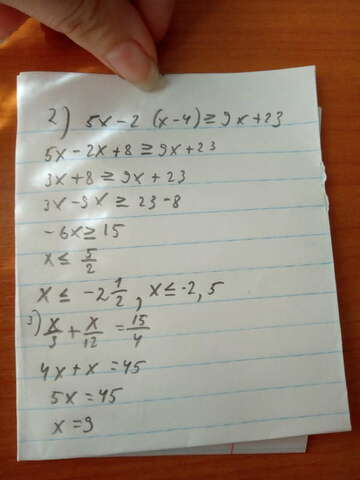 2) 5x-2 (x-4) ≥ 9x+23
5x-2x+8 ≥ 9x+23
3x+8 ≥ 9x+23
3x-9x ≥ 23-8
-6x ≥ 15
x ≤ 5/2
x ≤ -2 1/2, x ≤ -2,5
3) x/3 + x/12 = 15/4
4x+x = 45
5x = 45
x = 9